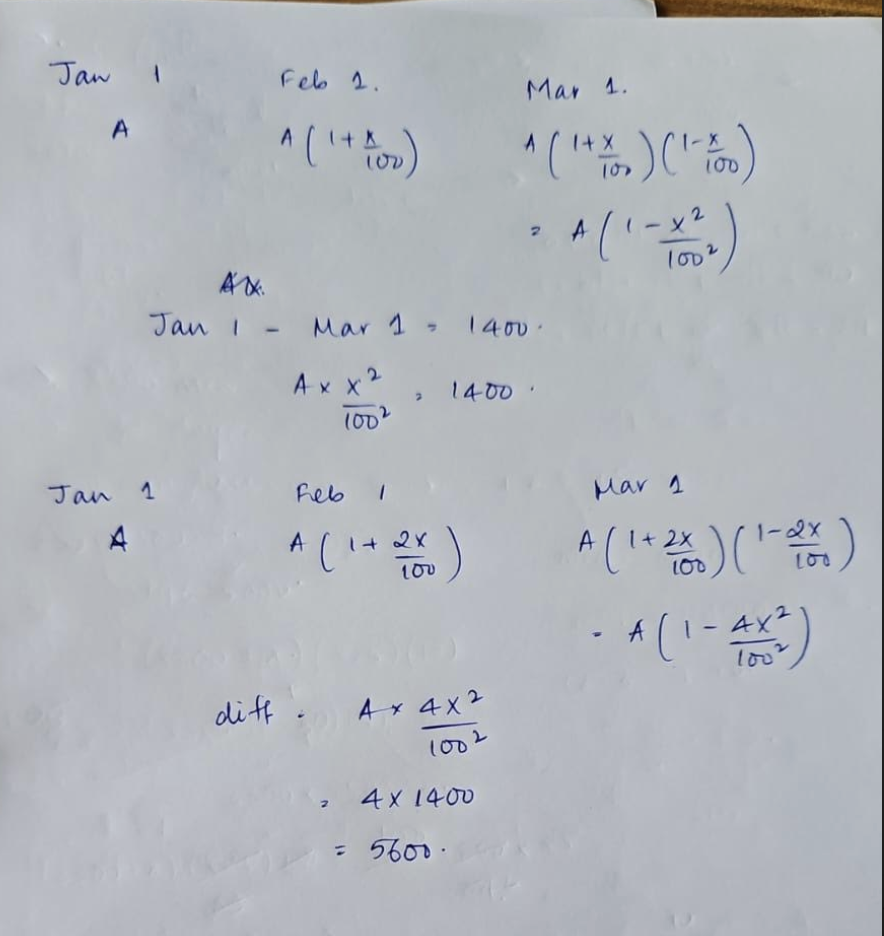 Jan 1 Feb 1. Mar 1.
A A(1+x/100) A(1+x/100)(1-x/100)
= A(1-x²/100²)
Jan 1 - Mar 1 = 1400.
A × x²/100² = 1400.
Jan 1 Feb 1 Mar 1
A A(1+2x/100) A(1+2x/100)(1-2x/100)
= A(1-4x²/100²)
diff = A × 4x²/100²
= 4 × 1400
= 5600.